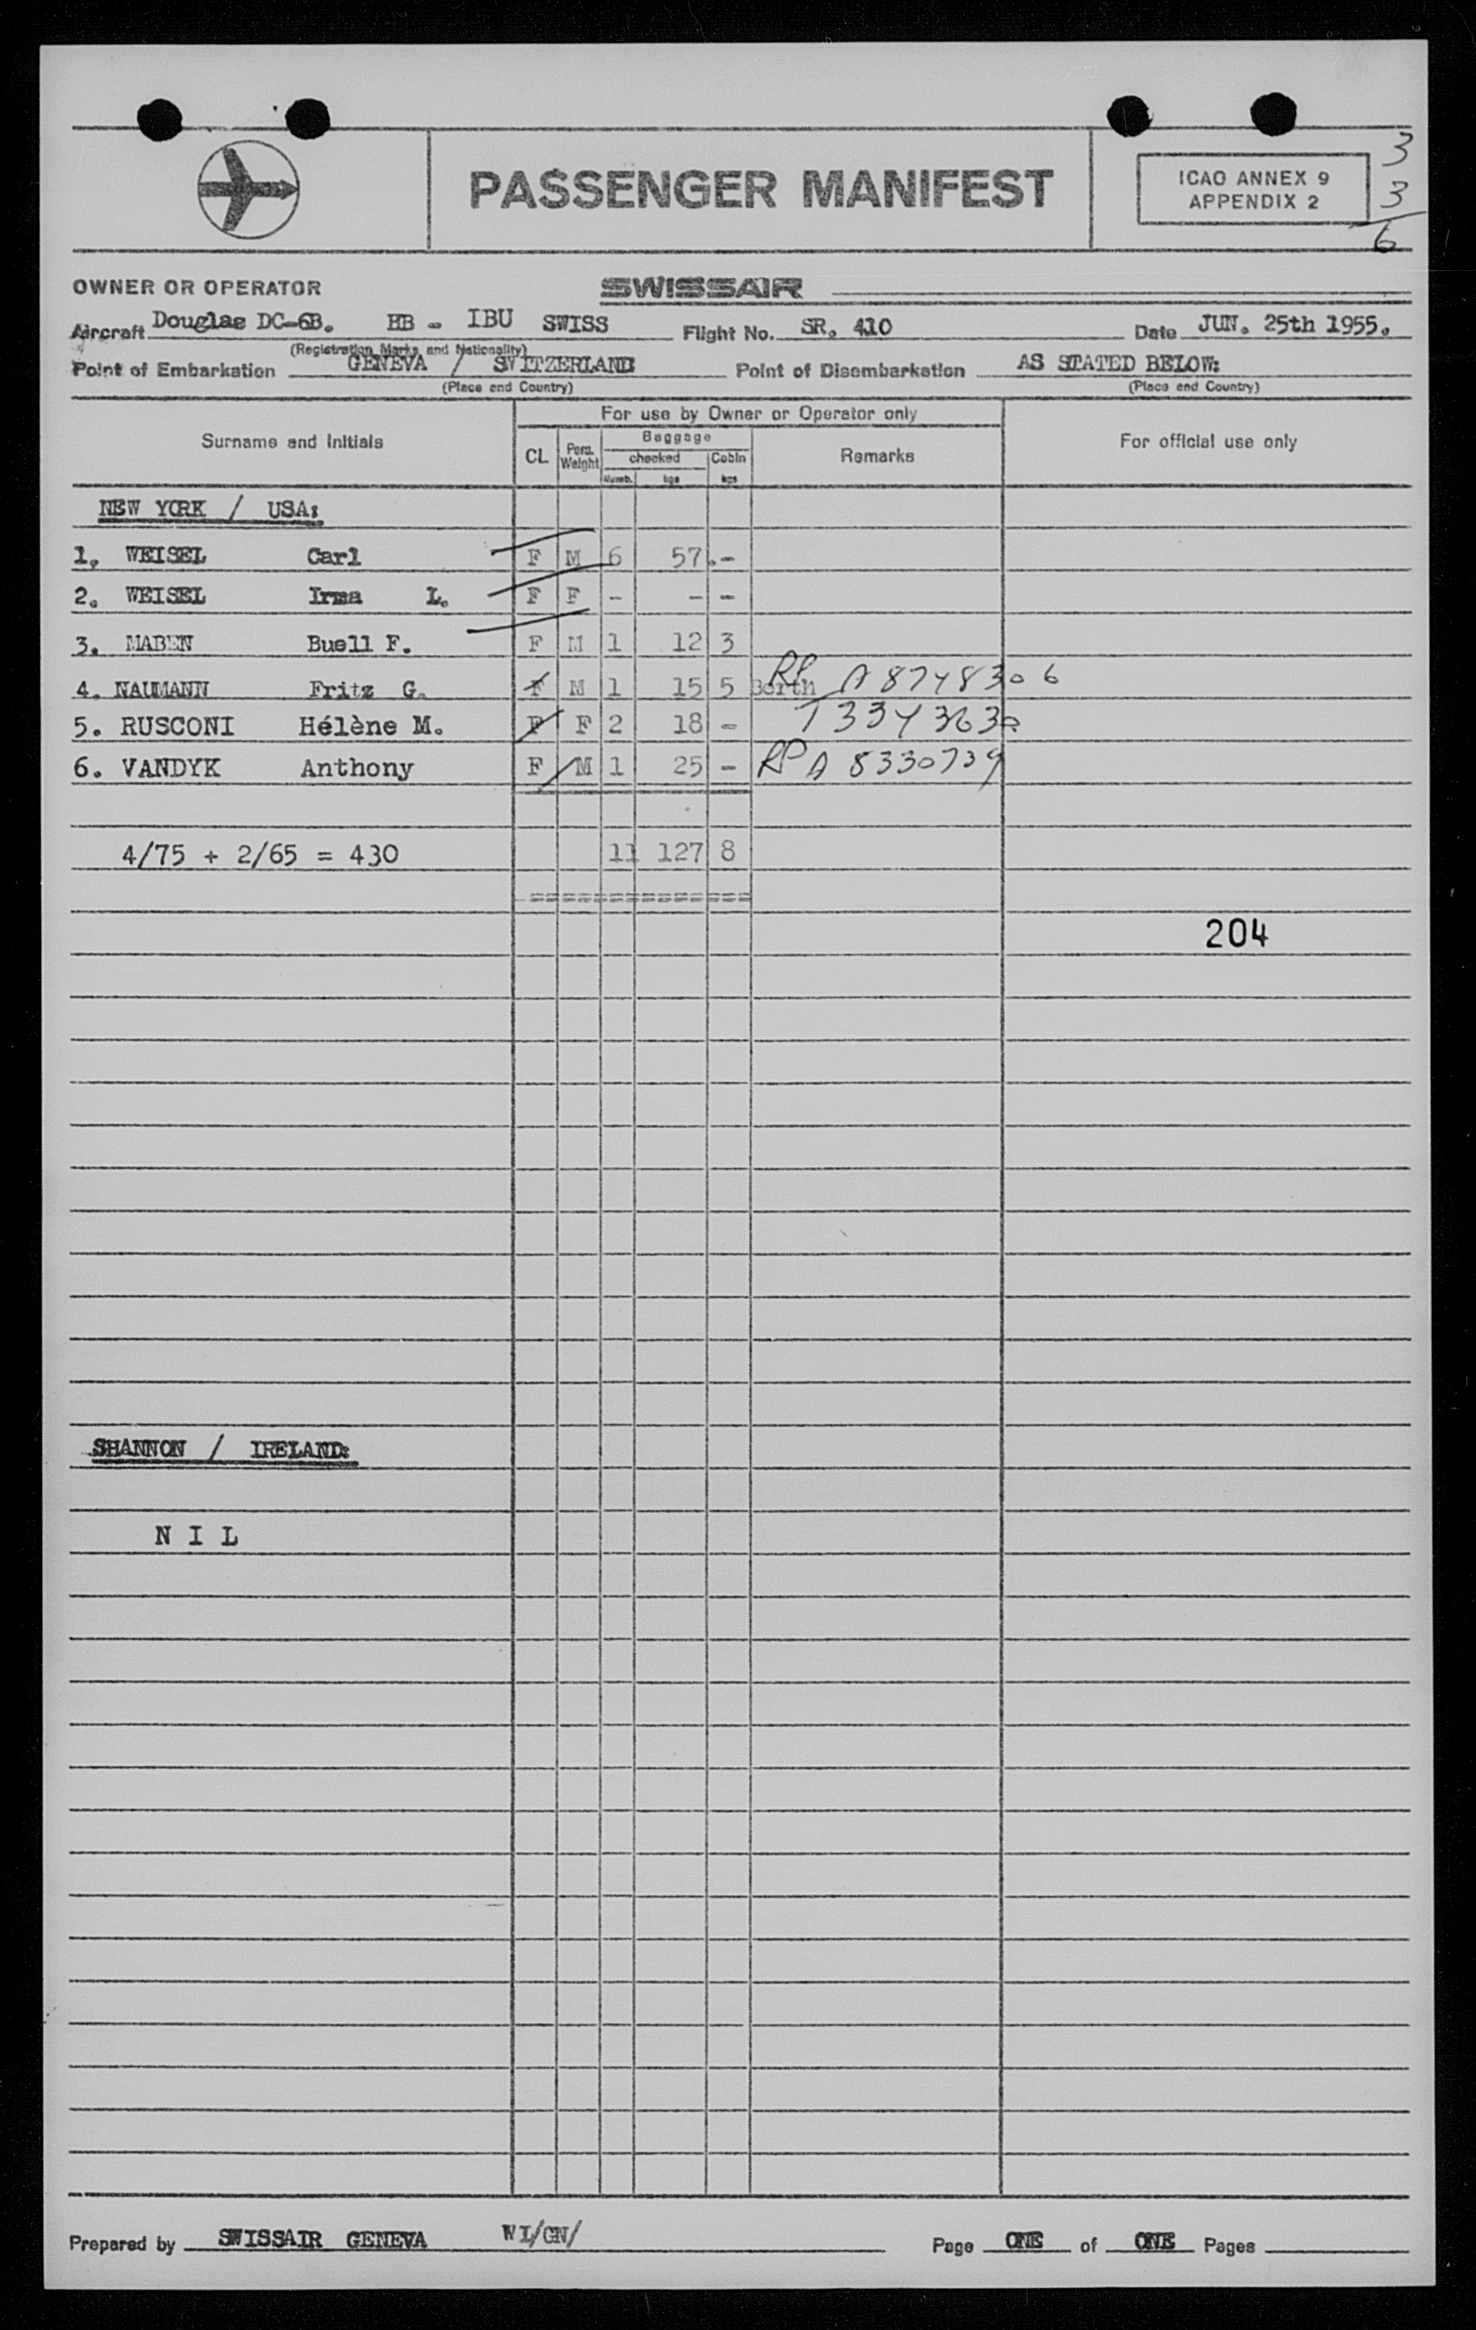 PASSENGER MANIFEST
ICAO ANNEX 9
APPENDIX 2
3
3
6
OWNER OR OPERATOR SWISSAIR
Aircraft Douglas DC-6B. HB - IBU SWISS Flight No. SR. 410 Date JUN. 25th 1955.
(Registration Marks and Nationality)
Point of Embarkation GENEVA / SWITZERLAND Point of Disembarkation AS STATED BELOW:
(Place and Country) (Place and Country)
For use by Owner or Operator only
Surname and Initials CL Pers. Weight Baggage Remarks For official use only
checked Cabin
Numb. kgs kgs
NEW YORK / USA:
1. WEISEL Carl F M 6 57 .-
2. WEISEL Irma L. F F - - -
3. MABEN Buell F. F M 1 12 3
4. NAUMANN Fritz G. F M 1 15 5 Berth RP A8748306
5. RUSCONI Hélène M. F F 2 18 -
6. VANDYK Anthony F M 1 25 - RP A 8330739
4/75 + 2/65 = 430 11 127 8
=====================
204
SHANNON / IRELAND:
N I L
Prepared by SWISSAIR GENEVA WI/GN/ Page ONE of ONE Pages